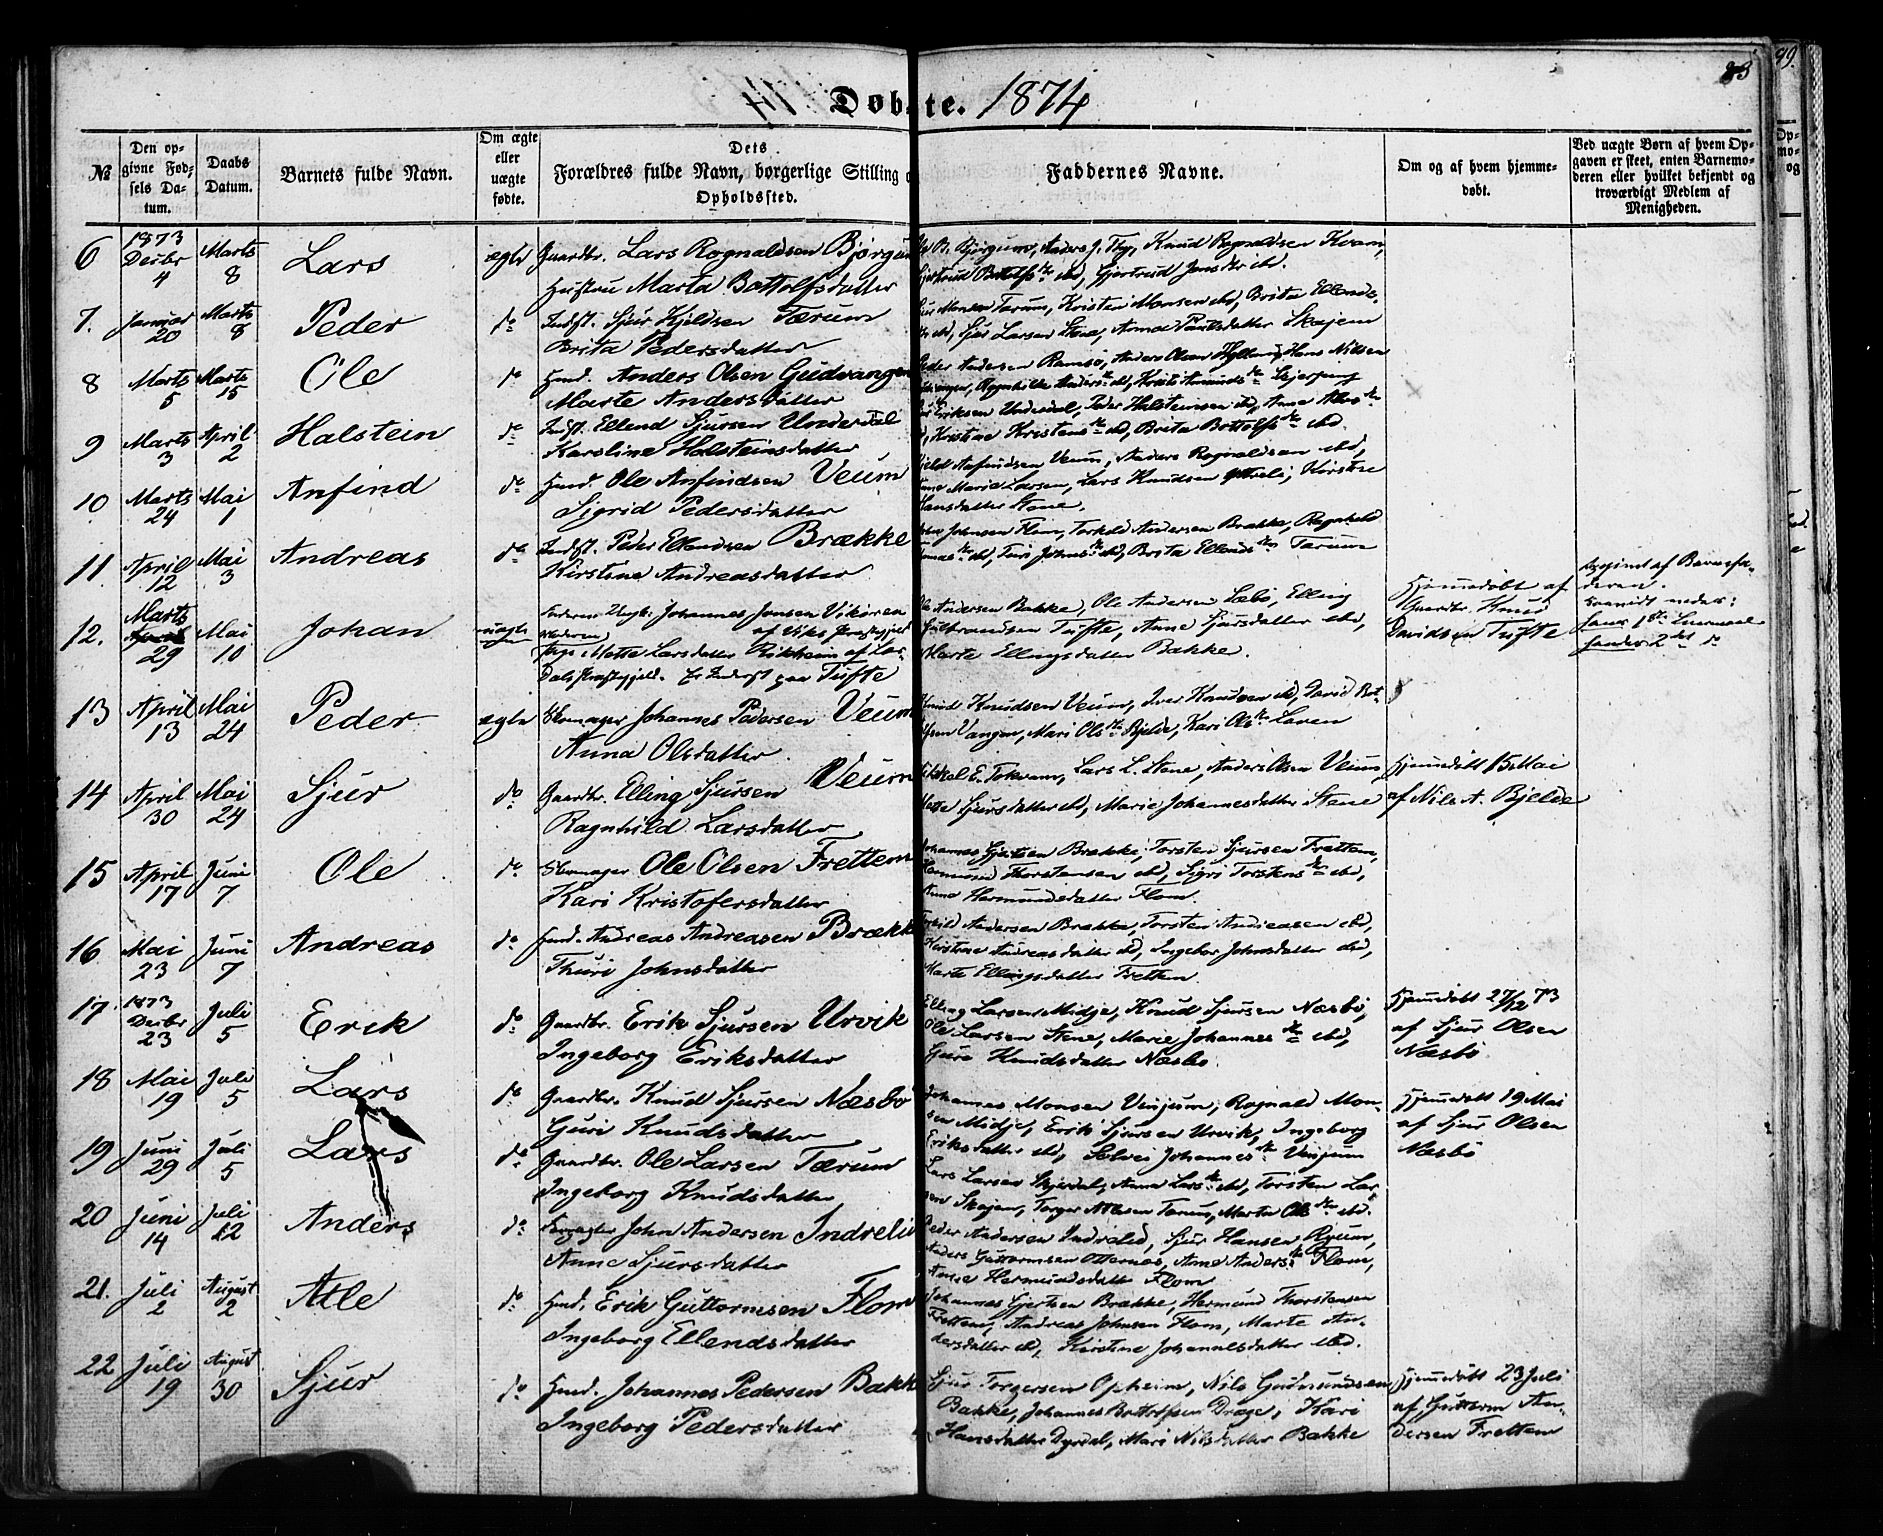 Døbte. 1874
83
99.
№
Den op-
givne Fød-
sels Da-
tum.
Daabs
Datum.
Barnets fulde Navn.
Om ægte
eller
uægte
fødte.
Dets
Forældres fulde Navn, borgerlige Stilling
Opholdssted.
Faddernes Navne.
Om og af hvem hjemme-
døbt.
Ved uægte Børn af hvem Op-
gaven er skeet, enten Barnemo-
deren eller hvilket bekjendt og
troværdigt Medlem af
Menigheden.
6 1873 Decbr 4 Marts 8 Lars ægte Gaardbr. Lars Rognaldsen Bjørgum
Hustru Marta Bottolfsdatter
B. Bjørgum, Anders J. Thy, Knud Rognaldsen Kvam,
Gjertrud Bottolfsdr ibd, Gjertrud Jonsdr ibd.
7. Januar 20 Marts 8 Peder do Indst. Sjur Kjeldsen Tærum
Brita Pedersdatter
Monsen Tærum, Kristen Monsen ibd, Brita Ellends-
ibd, Sjur Larsen Stene, Anna Paulsdatter Skajem
8 Marts 5 Marts 15 Ole do Huusd. Anders Olsen Gudvangen
Marte Andersdatter
Peder Andersen Ramsø, Anders Olsen Hylland, Hans Nilsen
Gudvangen, Ragnhilde Andersdr ibd, Kristi Amundsdr Skjerping
9 Marts 3 April 2 Halstein do Indst. Ellend Sjursen Underdal
Karoline Halsteinsdatter
Eriksen Underdal, Peder Halsteinsen ibd, Anna Atlesdr
Kristine Kristensdr ibd, Brita Bottolfsdr ibd.
10 Marts 24 Mai 1 Anfind do Huusd. Ole Anfindsen Veum
Sigrid Pedersdatter
Kjeld Anfindsen Veum, Anders Rognaldsen ibd,
Anne Marie Larsen, Lars Knudsen Ytreli, Kirstine
Hansdatter Stene.
11 April 12 Mai 3 Andreas do Indst. Peder Ellendsen Brække
Kirstine Andreasdatter
Johnsen Flom, Torkeld Andersen Brække, Ragnhild
ibd, Turi Johnsdr ibd, Brita Ellendsdr Tærum
12. Marts 29 Mai 10 Johan uægte Faderen Ungk. Johannes Jonsen Vikøren
af Viks Præstegjeld
Moderen
Pige Mette Larsdatter Rikheim af Lær-
dals Præstegjeld. Er Inderst paa Tufte
Ole Andersen Bakke, Ole Andersen Læbø, Elling
Gulbrandsen Tufte, Anne Sjursdatter ibd,
Marte Ellingsdatter Bakke.
Hjemmedøbt af
Gaardbr. Knud
Davidsen Tufte
Opgivet af Barnefa-
deren.
hans 1ste Leiermaal
hendes 2det do
13 April 13 Mai 24 Peder ægte Skomager Johannes Pedersen Veum
Anna Olsdatter
Knud Knudsen Veum, Iver Knudsen ibd, David Bot-
olfsen Vangen, Mari Olsdr Bjelde, Kari Olsdr Loven
14 April 30 Mai 24 Sjur do Gaardbr. Elling Sjursen Veum
Ragnhild Larsdatter
Mikkel E. Tokvam, Lars L. Stene, Anders Olsen Veum,
Mette Sjursdatter ibd, Marie Johannesdatter Stene
Hjemmedøbt 15 Mai
af Nils A. Bjelde
15 April 17 Juni 7 Ole do Skomager Ole Olsen Frettem
Kari Kristofersdatter
Johannes Gjertsen Brække, Torsten Sjursen Frettem,
Hermund Thorstensen ibd, Sigri Torstensdr ibd,
Anna Hermundsdatter Flom.
16 Mai 23 Juni 7 Andreas do Huusd. Andreas Andreasen Brække
Thuri Johnsdatter
Torkild Andersen Brække, Torsten Andreasen ibd,
Kirstine Andreasdatter ibd, Ingebor Johnsdatter ibd,
Marte Ellingsdatter Frettem.
17 1873 Decbr 23 Juli 5 Erik do Gaardbr. Erik Sjursen Urvik
Ingeborg Eriksdatter
Elling Larsen Midje, Knud Sjursen Næsbø,
Ole Larsen Stene, Marie Johannesdr ibd,
Guri Knudsdatter Næsbø.
Hjemmedøbt 27/12 73
af Sjur Olsen
Næsbø
18 Mai 19 Juli 5 Lars do Gaardbr. Knud Sjursen Næsbø
Guri Knudsdatter
Johannes Monsen Vinjum, Rognald Mon-
sen Midje, Erik Sjursen Urvik, Ingeborg
Eriksdatter ibd, Solvei Johannesdr Vinjum
Hjemmedøbt 19 Mai
af Sjur Olsen
Næsbø
19 Juni 29 Juli 5 Lars do Gaardbr. Ole Larsen Tærum
Ingeborg Knudsdatter
Lars Larsen Skjerdal, Anna Larsdr ibd, Torsten Lar-
sen Skajem, Torger Atlesen Tærum, Marta Olsdr ibd.
20 Juni 14 Juli 12 Anders do John Andersen Indrelid
Anne Sjursdatter
Peder Andersen Indrelid, Sjur Hansen Ryum,
Anders Guttormsen Otternes, Anne Andersdr Flom,
Anne Hermundsdatt Flom
21. Juli 2 August 2 Atle do Huusd. Erik Guttormsen Flom
Ingeborg Ellendsdatter
Johannes Gjertsen Brække, Hermund Thorstensen
Frettem, Andreas Johnsen Flom, Marte An-
dersdatter ibd, Kirstine Johannesdatter ibid.
22 Juli 19 August 30 Sjur do Huusd. Johannes Pedersen Bakke
Ingeborg Pedersdatter
Sjur Torgersen Opheim, Nils Gudmundsen
Bakke, Johannes Bottolfsen Drage, Kari
Hansdatter Dyrdal, Mari Nilsdatter Bakke
Hjemmedøbt 23 Juli
af Guttorm An-
dersen Frettem